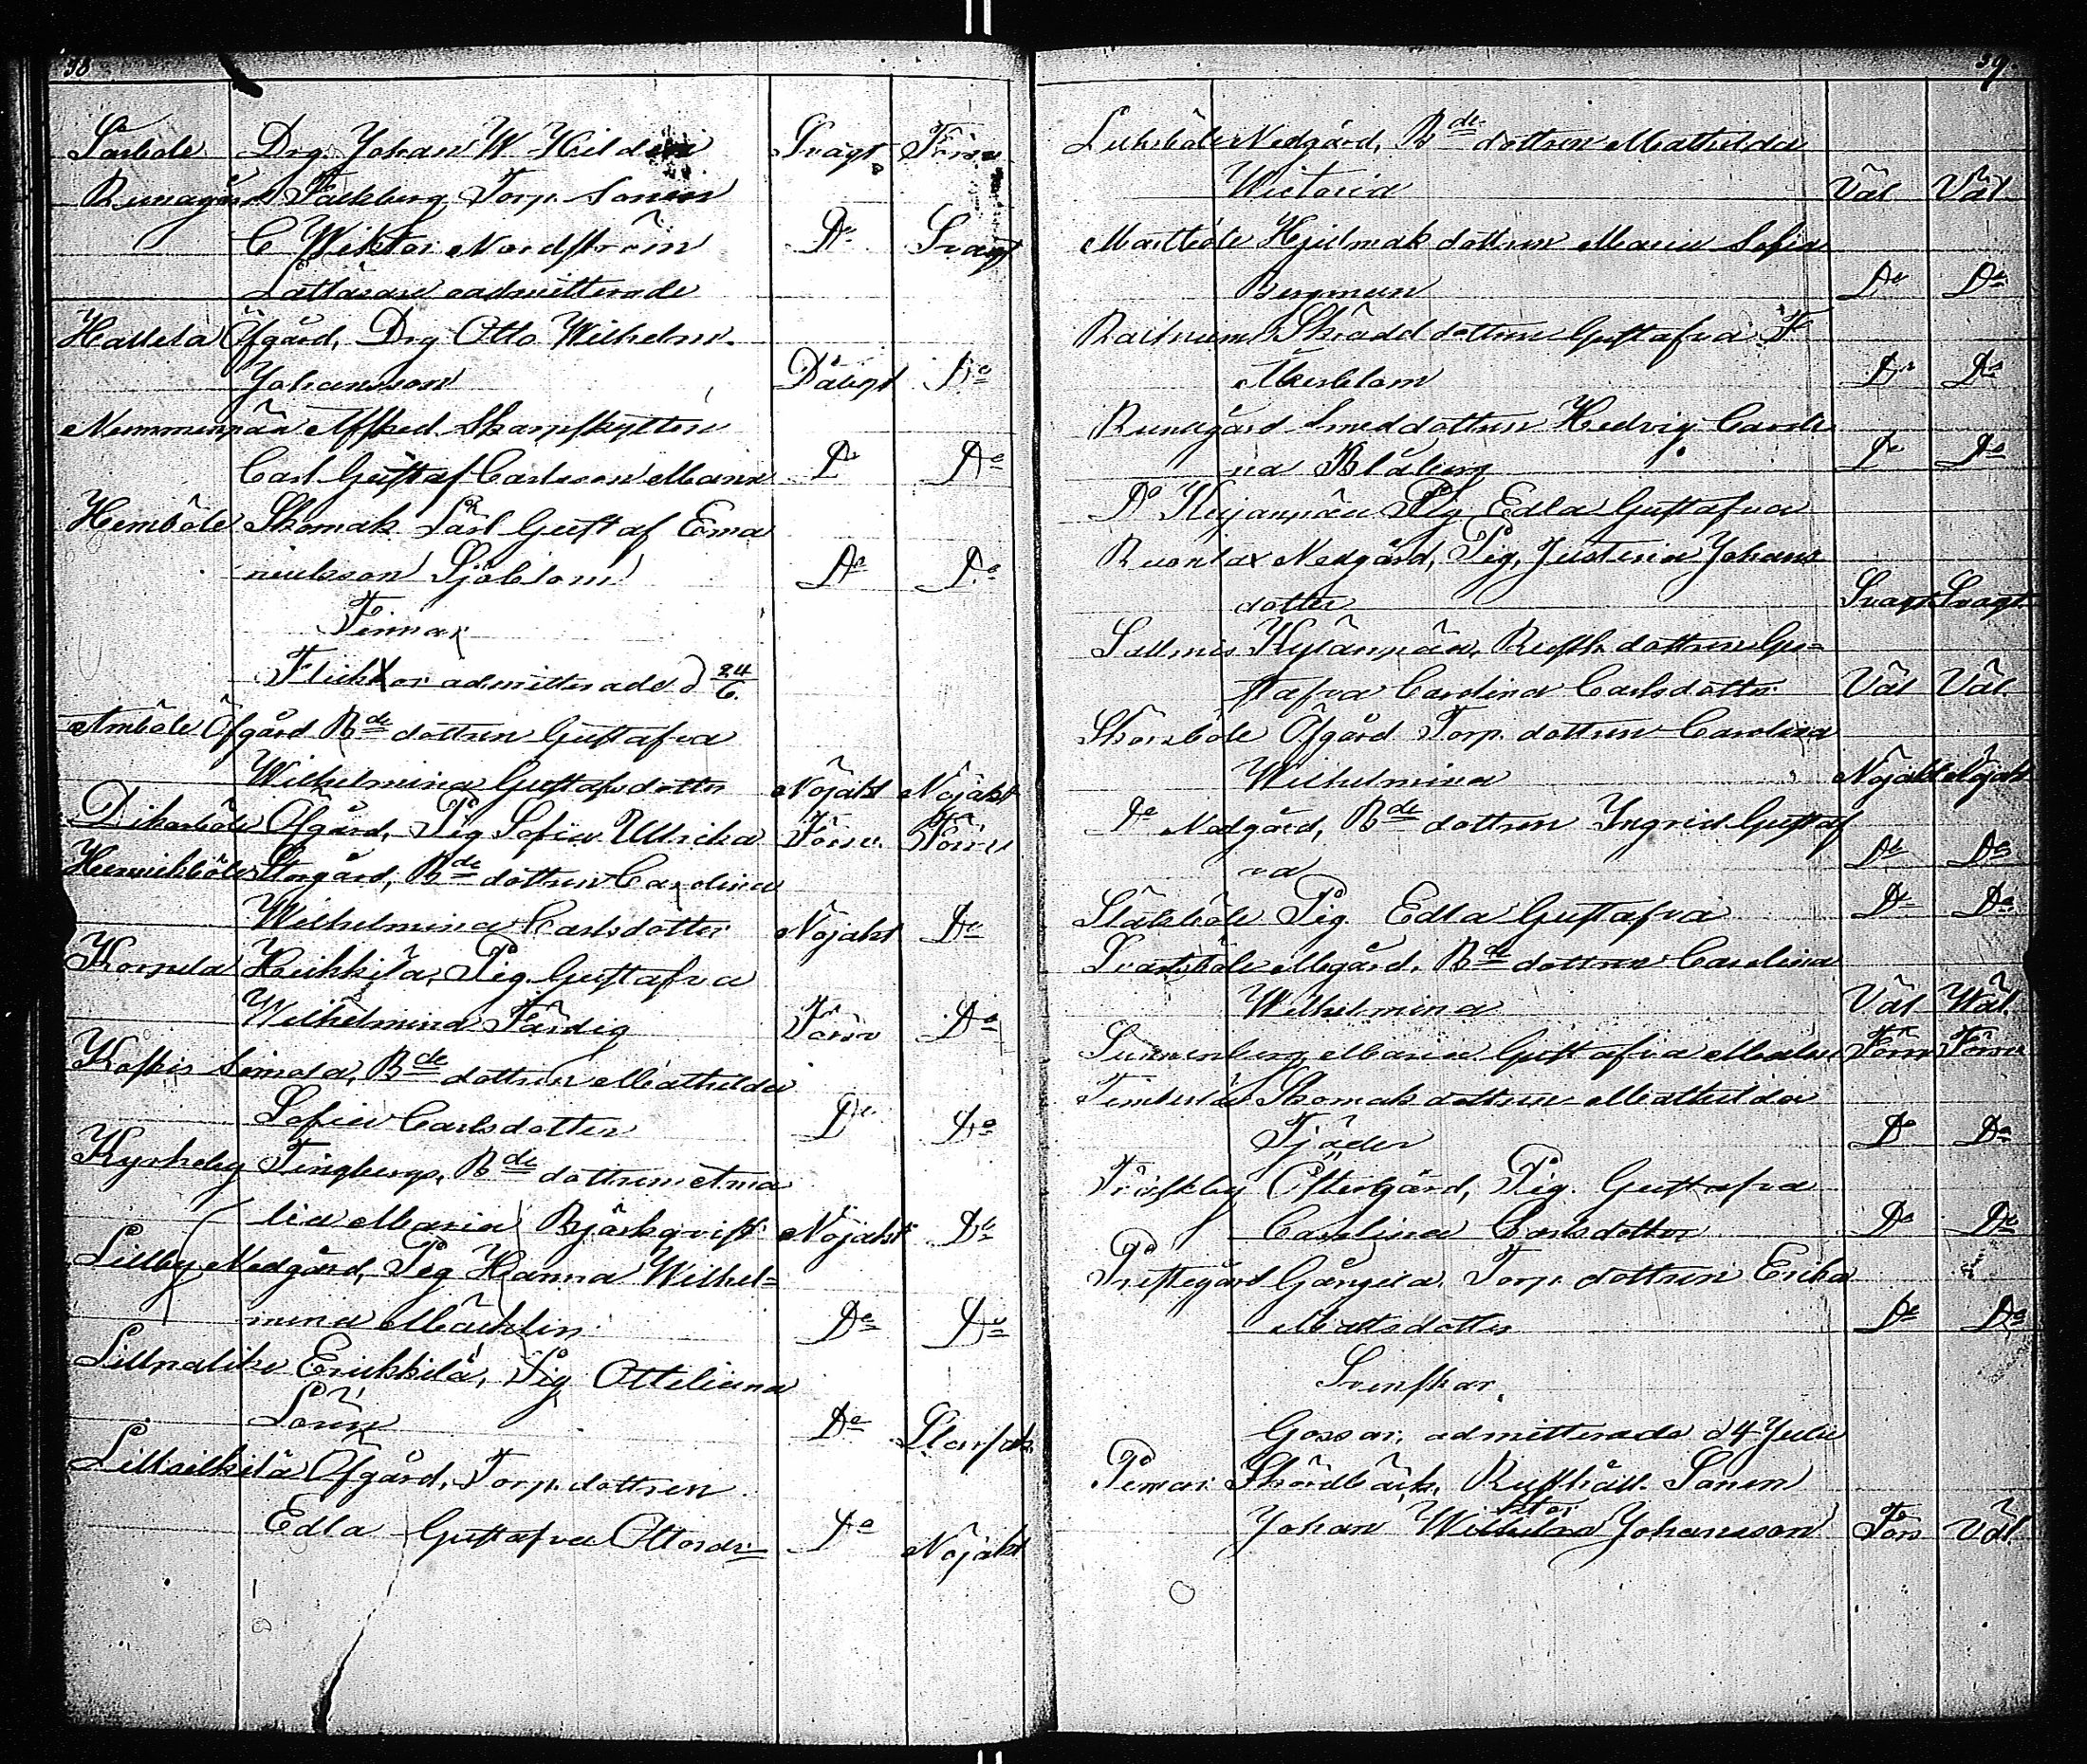 38
Särböle Drg Johan W Hilden Svagt Försv
Runagård Falkberg Torp. Sonen
C Wiktor Nordström Do Svagt
Lättläsare admitterade
Hallela Öfgård, Drg Otto Wilhelm
Johansson Dåligt Do
Nummenpää Afsked Skarpskytten
Carl Gustaf Carlsson Mann Do Do
Hemböle Skomak Lärl Gustaf Ema
nuelsson Sjöblom Do Do
Finnar
Flickor admitterade d 24/6.
Amböle Öfgård Bde dottren Gustafva
Wilhelmina Gustafsdotter Nöjakt Nöjakt
Dikarböle Öfgård, Pig Sofia Ulrika Försv. Försv
Henrikböle Storgård, Bde dottren Carolina
Wilhelmina Carlsdotter Nöjakt Do
Korsula Heikkilä, Pig Gustafva
Wilhelmina Färdig Försv Do
Koskis Simola, Bde dottren Mathilda
Sofia Carlsdotter Do Do
Kyrkeby Tingbergs, Bde dottren Ama
lia Maria Björkqvist Nöjakt Do
Lillby Nedgård, Pig Hanna Wilhel=
mina Mäcklin Do Do
Erickkilä, Pig Otteliana
Lorin Do
Öfgård, Torp. dottren
Edla Gustafva Ottosdr Do Nöjakt
39.
Nedgård, Bde dottren Mathilda
Wictoria Väl Väl
Martböle Hjulmak dottren Maria Sofia
Bergman Do Do
Raitniemi Skrädd dottren Gustafva F
Åkerblom Do Do
Runagård Smeddottren Hedvig Caroli
na Blåberg Do Do
Do Kujanpää Pig Edla Gustafva
Ruonlax Nedgård, Pig, Justina Johans
dotter Svagt Svagt
Salmis Kylänpää, Rusth. dottren Gu=
stafva Carolina Carlsdotter Väl Väl.
Skoräböle Öfgård Torp. dottren Carolina
Wilhelmina Nöjakt Nöjakt
Do Nedgård, Bde dottren Ingrid Gustaf
va Do Do
Stålsböle Pig. Edla Gustafva Do Do
Svartböle Megård, Bde dottren Carolina
Wilhelmina Väl Wäl.
Sunnanberg Maria Gustafva Malm Försv Försv
Timberlä Skomak dottren Mathilda
Tjäder Do Do
Träskby Östergård, Pig. Gustafva
Carolina Carlsdotter Do Do
Prestegård Gångila, Torp. dottren Erika
Mattsdotter Do Do
Svenskar.
Gossar, admitterade d 4 Julii
Pemar Skördbäck, Rusthåll. Sonen
Johan Wiktor Johansson Förs Väl.